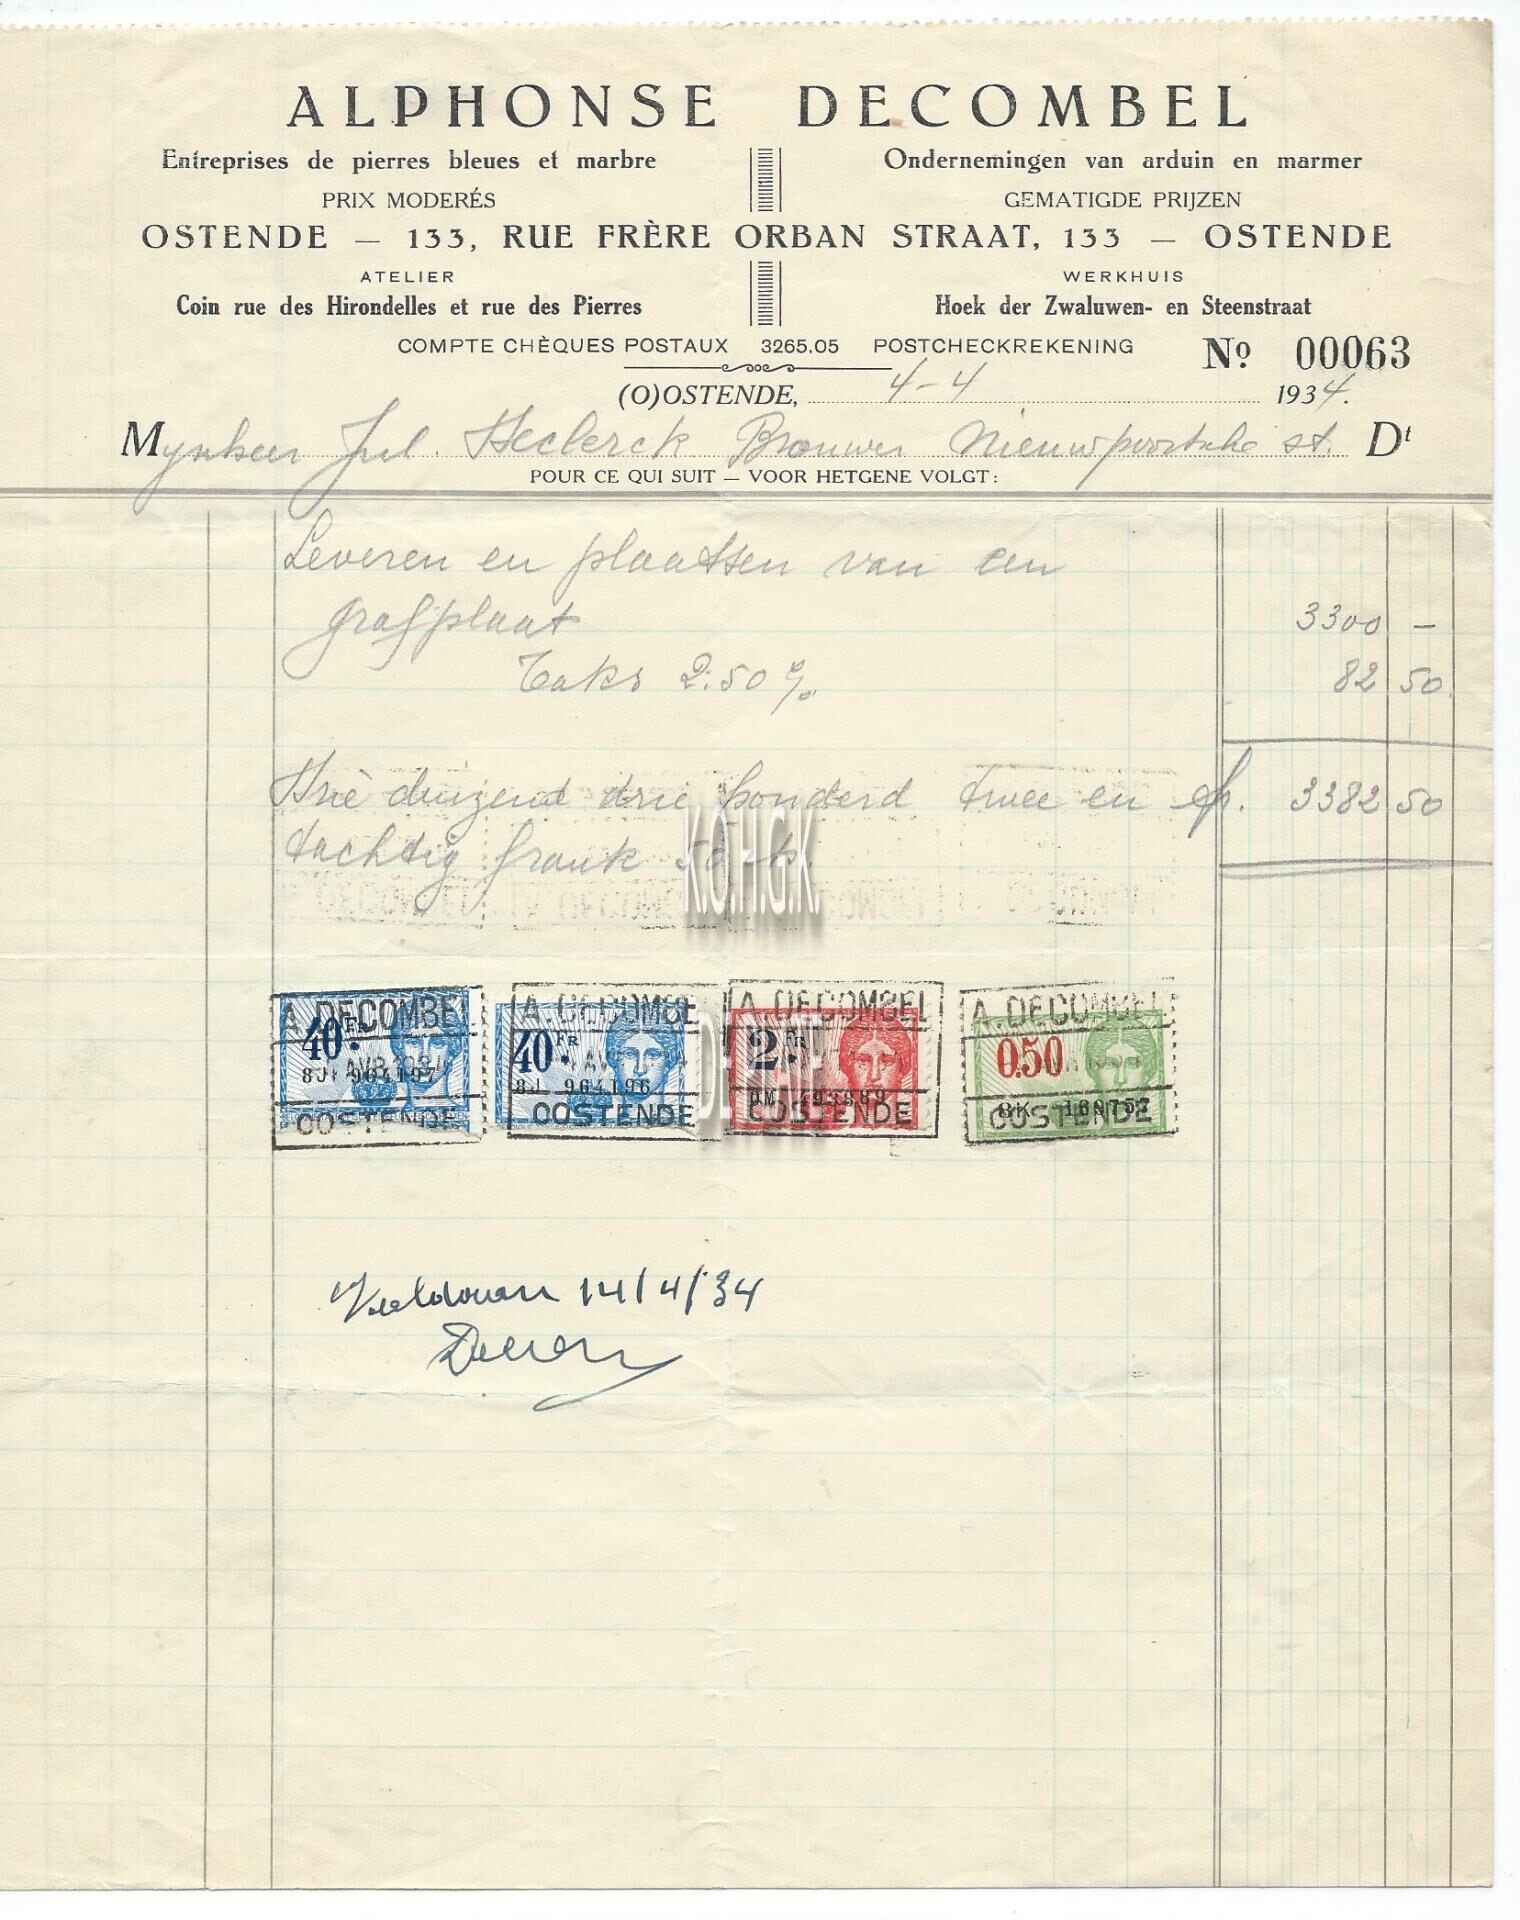 ALPHONSE DECOMBEL
Entreprises de pierres bleues et marbre
Ondernemingen van arduin en marmer
PRIX MODERÉS
GEMATIGDE PRIJZEN
OSTENDE — 133, RUE FRÈRE ORBAN STRAAT, 133 — OSTENDE
ATELIER
WERKHUIS
Coin rue des Hirondelles et rue des Pierres
Hoek der Zwaluwen- en Steenstraat
COMPTE CHÈQUES POSTAUX 3265.05 POSTCHECKREKENING
No 00063
(O)OSTENDE, 4-4 1934.
Mynheer Jul. Declerck Brouwer Nieuwpoortsche st. Dt
POUR CE QUI SUIT — VOOR HETGENE VOLGT:
Leveren en plaatsen van een
grafplaat 3300 —
Taks 2.50 % 82 50
Drie duizend drie honderd twee en fr. 3382 50
tachtig frank 50
K.O.H.G.K.
A. DECOMBEL A. DECOMBEL A. DECOMBEL A. DECOMBEL
40 Fr. 40 FR. 2 FR. 0.50
8J. 964197 8J. 964196
OOSTENDE OOSTENDE OOSTENDE OOSTENDE
DE PLATE
Voldaan 14/4/34